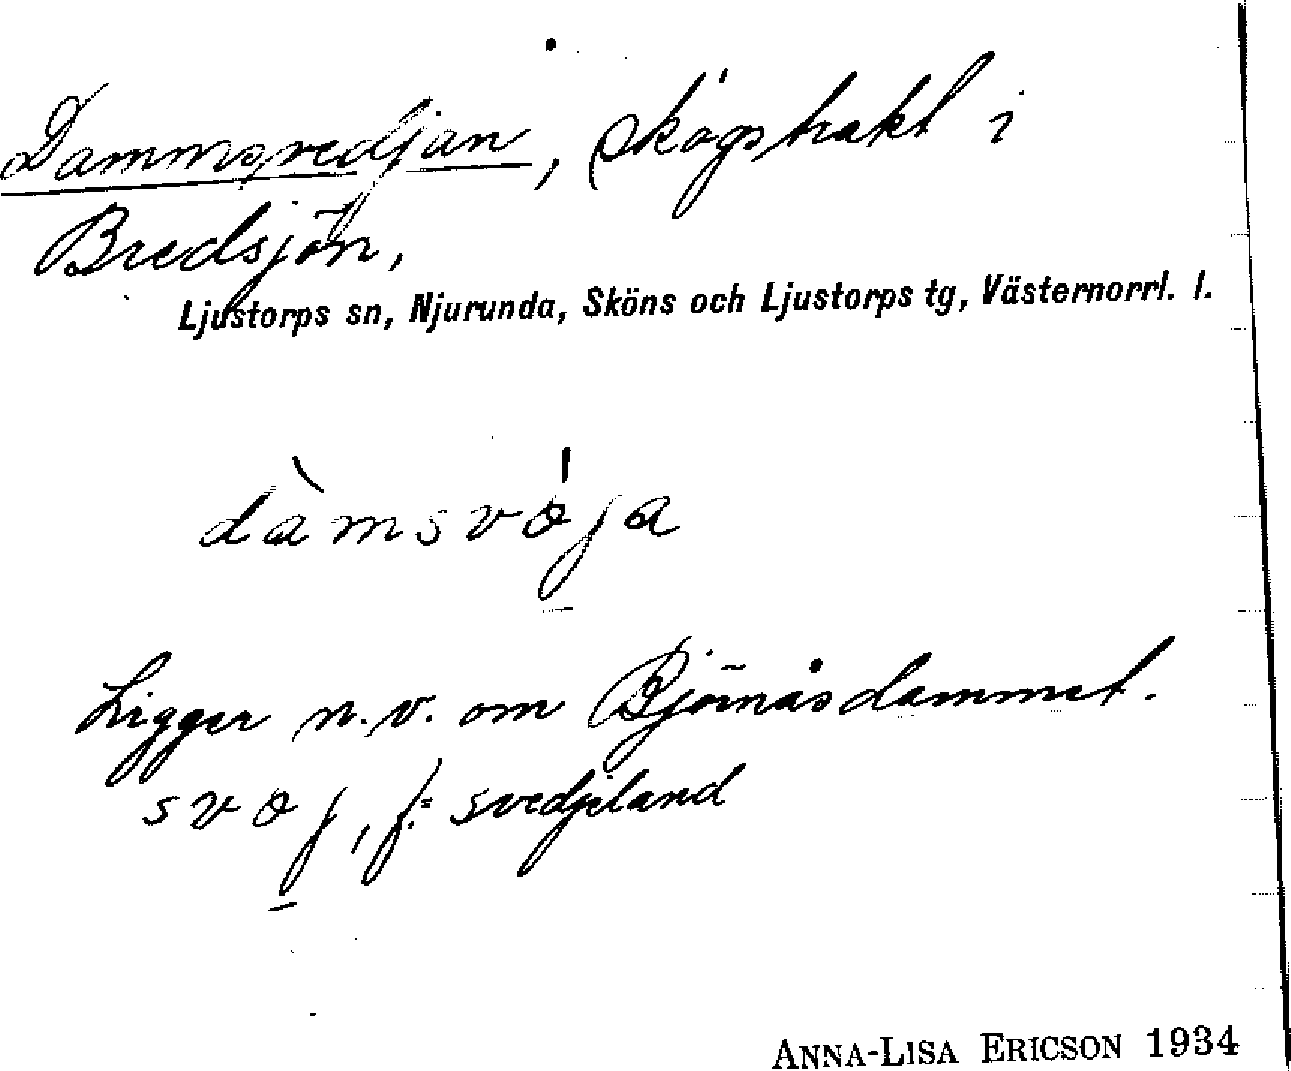 Dammsvedjan, skogstrakt i
Bredsjön,
Ljustorps sn, Njurunda, Sköns och Ljustorps tg, Västernorrl. l.
dàmsvǿja
Ligger n.v. om Björnåsdammet.
svøj, f. = svedjeland
ANNA-LISA ERICSON 1934